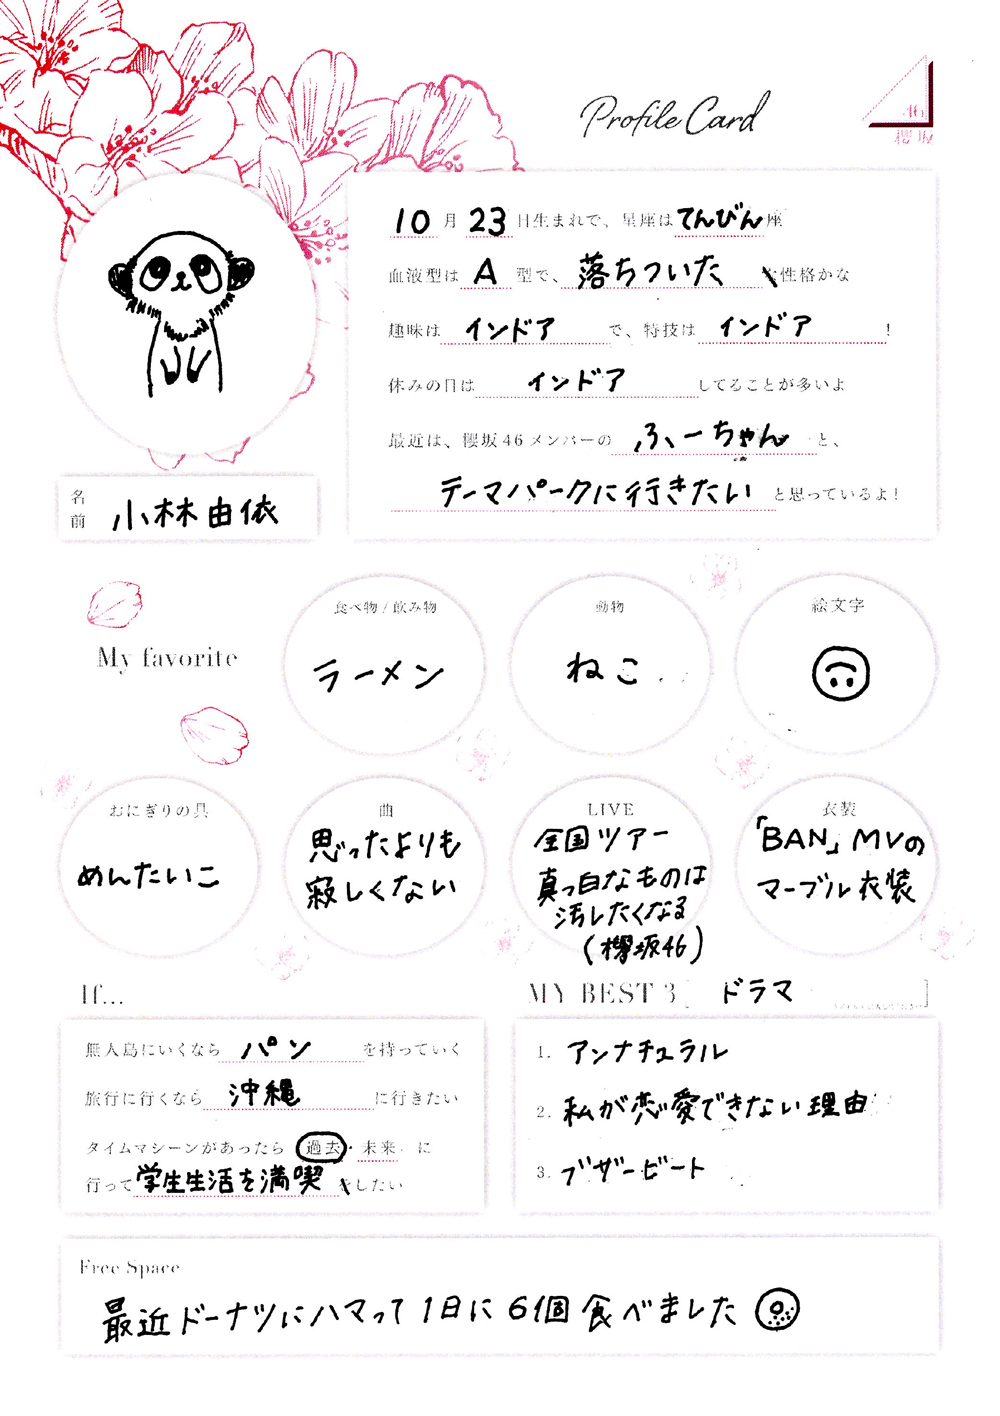 Profile Card
46
櫻坂
10月23日生まれで、星座はてんびん座
血液型はA型で、落ちついた性格かな
趣味はインドアで、特技はインドア!
休みの日はインドアしてることが多いよ
最近は、櫻坂46メンバーのふーちゃんと、
テーマパークに行きたいと思っているよ!
名前 小林由依
My favorite
食べ物/飲み物
ラーメン
動物
ねこ
絵文字
🙃
おにぎりの具
めんたいこ
曲
思ったよりも
寂しくない
LIVE
全国ツアー
真っ白なものは
汚したくなる
(欅坂46)
衣装
「BAN」MVの
マーブル衣装
If...
無人島にいくならパンを持っていく
旅行に行くなら沖縄に行きたい
タイムマシーンがあったら過去・未来に
行って学生生活を満喫したい
MY BEST 3[ドラマ]
1. アンナチュラル
2. 私が恋愛できない理由
3. ブザービート
Free Space
最近ドーナツにハマって1日に6個食べました